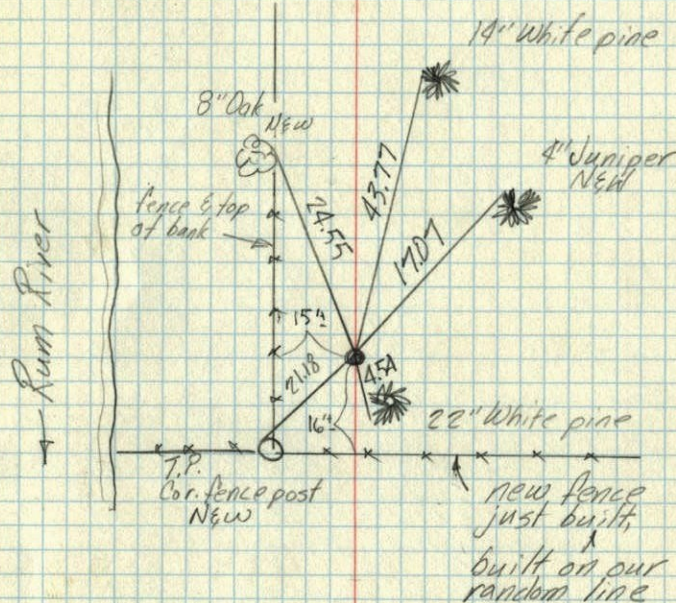 14" White pine
8" Oak
New
4" Juniper
New
fence & top
of bank
43.77
24.55
17.07
Rum River
15⁴
21.18
4.51
16⁴
22" White pine
T.P.
Cor. fence post
New
new fence
just built,
built on our
random line